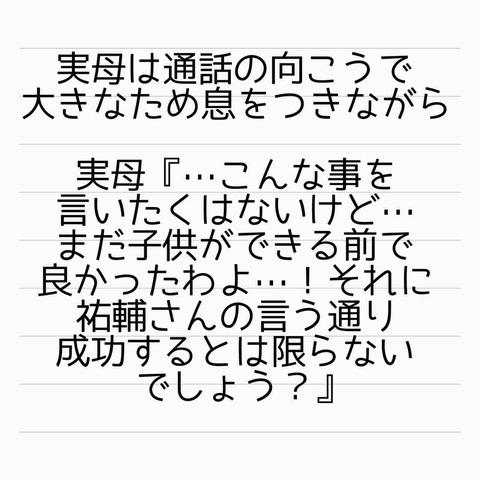 実母は通話の向こうで
大きなため息をつきながら
実母『…こんな事を
言いたくはないけど…
まだ子供ができる前で
良かったわよ…！それに
祐輔さんの言う通り
成功するとは限らない
でしょう？』